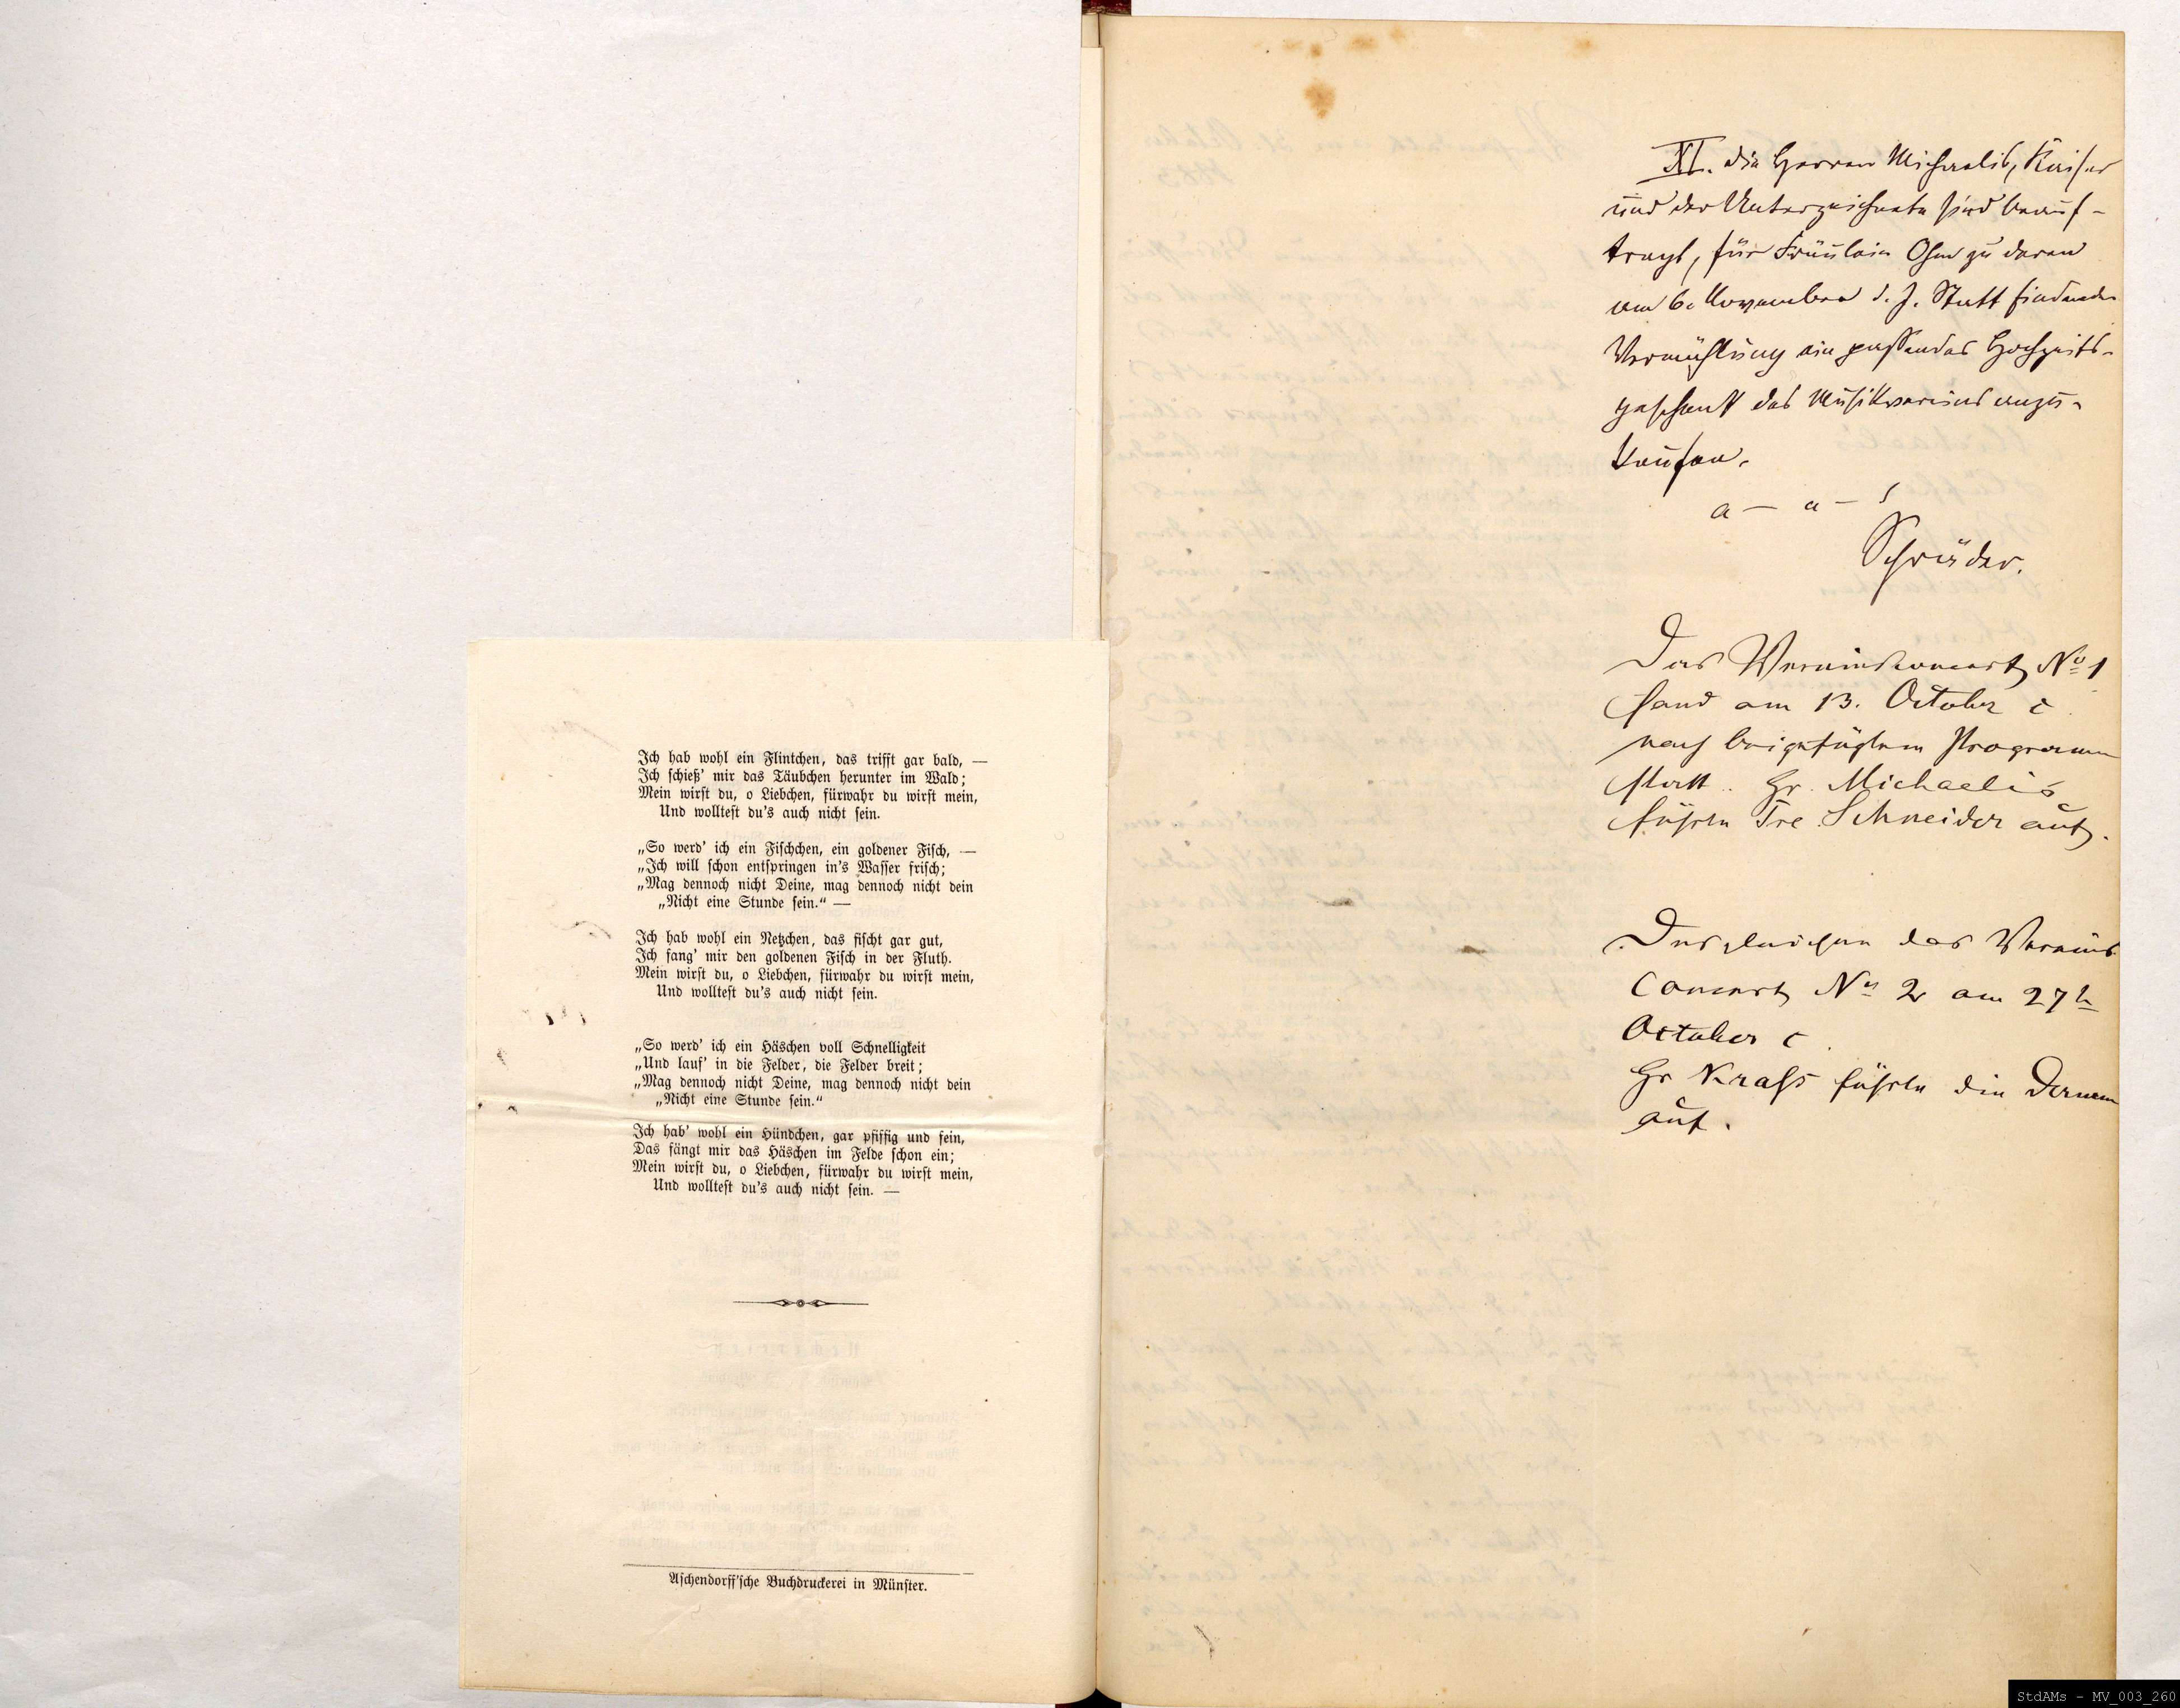 Ich hab wohl ein Flintchen, das trifft gar bald, —
Ich schieß' mir das Täubchen herunter im Wald;
Mein wirst du, o Liebchen, fürwahr du wirst mein,
Und wolltest du's auch nicht sein.
„So werd' ich ein Fischchen, ein goldener Fisch, —
„Ich will schon entspringen in's Wasser frisch;
„Mag dennoch nicht Deine, mag dennoch nicht dein
„Nicht eine Stunde sein.“ —
Ich hab wohl ein Netzchen, das fischt gar gut,
Ich fang' mir den goldenen Fisch in der Fluth.
Mein wirst du, o Liebchen, fürwahr du wirst mein,
Und wolltest du's auch nicht sein.
„So werd' ich ein Häschen voll Schnelligkeit
„Und lauf' in die Felder, die Felder breit;
„Mag dennoch nicht Deine, mag dennoch nicht dein
„Nicht eine Stunde sein.“
Ich hab' wohl ein Hündchen, gar pfiffig und fein,
Das fängt mir das Häschen im Felde schon ein;
Mein wirst du, o Liebchen, fürwahr du wirst mein,
Und wolltest du's auch nicht sein. —
Aschendorff'sche Buchdruckerei in Münster.
XI. Die Herren Michaelis, Kaiser
und der Unterzeichnete sind beauf-
tragt, für Fräulein Ohm zu deren
am 6. November d. J. Statt findenden
Vermählung ein passendes Hochzeits-
geschenk des Musikvereins anzu-
kaufen.
a — u — s
Schröder.
Das Vereinsconcert No 1
fand am 13. October c
nach beigefügtem Programm
statt. Hr. Michaelis
führte Fre Schneider auf.
Desgleichen das Vereins
Concert No 2 am 27t
October c.
Hr Krass führte die Damen
auf.
StdAMs - MV_003_260